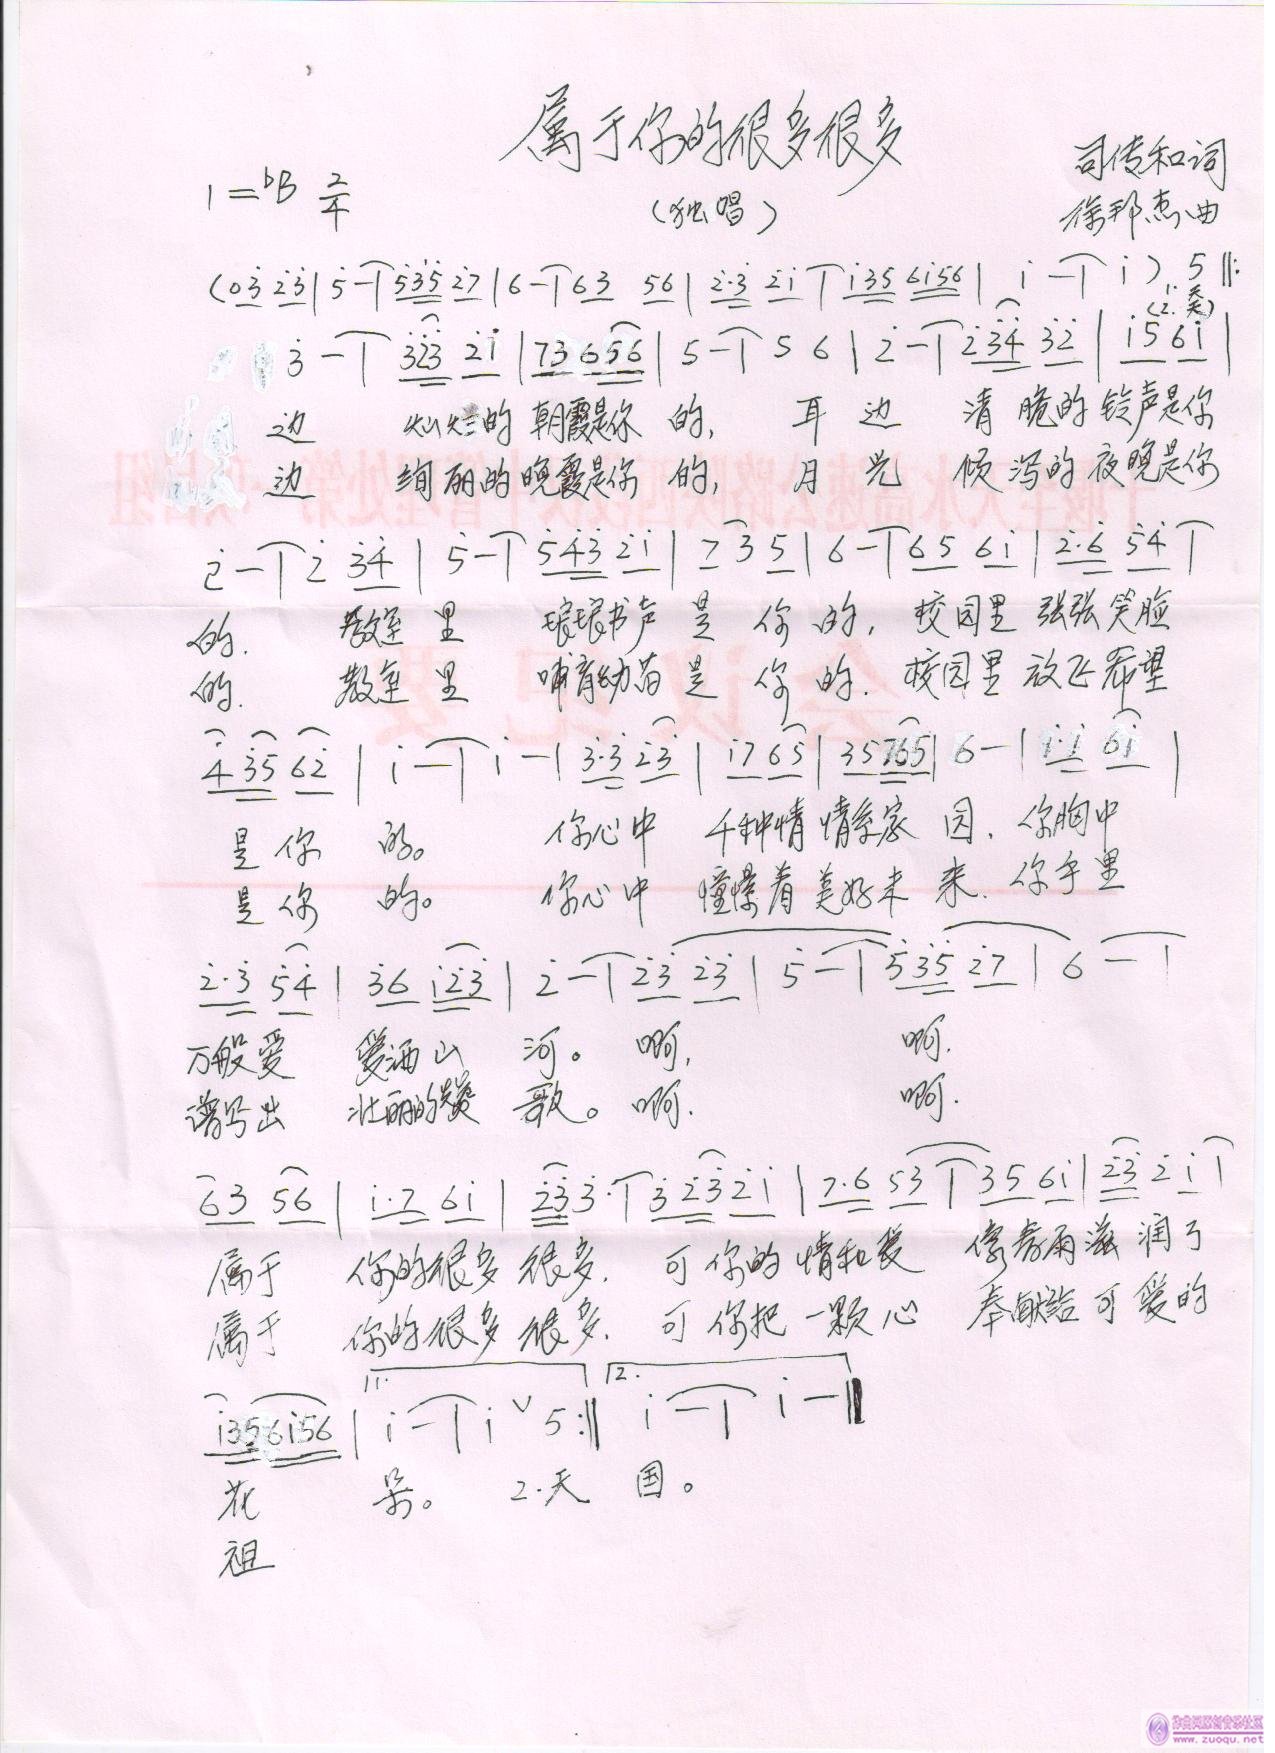 属于你的很多很多
司传和词
1=♭B 2/4
(独唱)
徐邦杰曲
(03 23|5-|535 27|6-|63 56|2·3 21|135 6156|1-|1) 5 ‖:
1. 天
(2. 天)
3-|323 21|73 656|5-|5 6|2-|234 32|15 61|
边 灿烂的朝霞是你 的, 耳边 清脆的铃声是你
边 绚丽的晚霞是你 的, 月光 倾泻的夜晚是你
2-|2 34|5-|543 21|7 3 5|6-|65 61|2·6 54|
的. 教室里 琅琅书声是你的, 校园里 张张笑脸
的. 教室里 哺育幼苗是你的. 校园里 放飞希望
435 62|1-|1-|3·3 23|17 65|35 765|6-|1·1 61|
是你 的。 你心中 千种情 情系家园. 你胸中
是你 的。 你心中 憧憬着 美好未来. 你手里
2·3 54|36 123|2-|23 23|5-|535 27|6-|
万般爱 爱洒山河。啊, 啊.
谱写出 壮丽的赞歌。啊. 啊.
63 56|1·7 61|23 3·|3 23 21|7·6 53|35 61|23 2 1|
属于 你的很多很多. 可你的情和爱 像春雨滋润了
属于 你的很多很多. 可你把一颗心 奉献给可爱的
135 6156|1.1-|1 ∨ 5:‖2.1-|1-‖
花 朵。 2.天 国。
祖
作曲网原创音乐社区
www.zuoqu.net